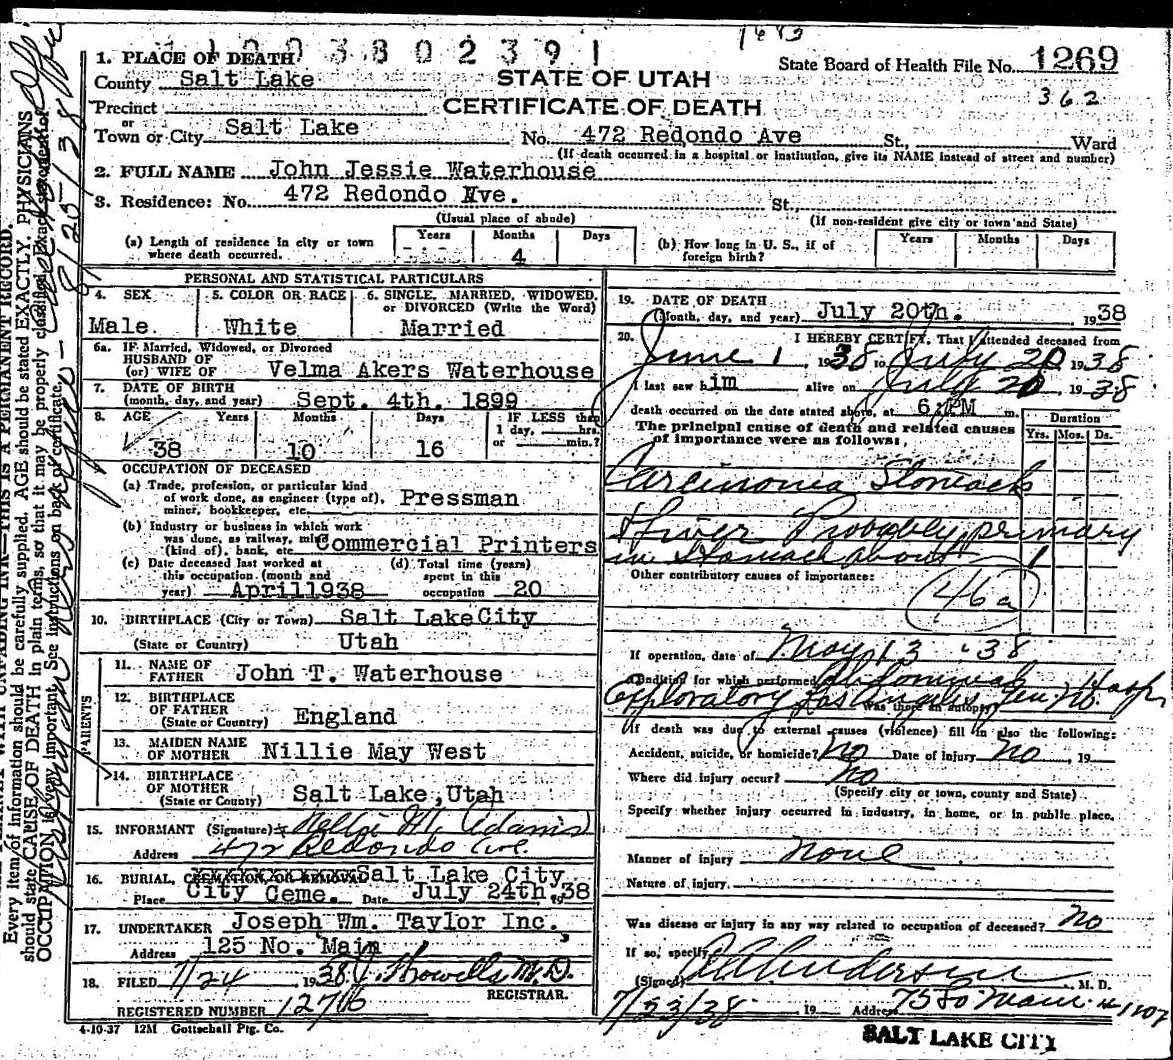 1003802391
State Board of Health File No. 1269
362
1. PLACE OF DEATH
County Salt Lake
STATE OF UTAH
CERTIFICATE OF DEATH
Precinct
or
Town or City Salt Lake No. 472 Redondo Ave St., Ward
(If death occurred in a hospital or institution, give its NAME instead of street and number)
2. FULL NAME John Jessie Waterhouse
3. Residence: No. 472 Redondo Ave. St.
(Usual place of abode) (If non-resident give city or town and State)
(a) Length of residence in city or town where death occurred. Years Months 4 Days
(b) How long in U. S., if of foreign birth? Years Months Days
PERSONAL AND STATISTICAL PARTICULARS
4. SEX Male
5. COLOR OR RACE White
6. SINGLE, MARRIED, WIDOWED, or DIVORCED (Write the Word) Married
6a. IF Married, Widowed, or Divorced
HUSBAND OF
(or) WIFE OF Velma Akers Waterhouse
7. DATE OF BIRTH
(month, day, and year) Sept. 4th. 1899
8. AGE Years 38 Months 10 Days 16 IF LESS than 1 day, hrs. or min.?
OCCUPATION OF DECEASED
(a) Trade, profession, or particular kind
of work done, as engineer (type of),
miner, bookkeeper, etc. Pressman
(b) Industry or business in which work
was done, as railway, mine
(kind of), bank, etc Commercial Printers
(c) Date deceased last worked at
this occupation (month and
year) April1938
(d) Total time (years)
spent in this
occupation 20
10. BIRTHPLACE (City or Town) Salt LakeCity
(State or Country) Utah
PARENTS
11. NAME OF
FATHER John T. Waterhouse
12. BIRTHPLACE
OF FATHER
(State or Country) England
13. MAIDEN NAME
OF MOTHER Nillie May West
14. BIRTHPLACE
OF MOTHER
(State or County) Salt Lake,Utah
15. INFORMANT (Signature) Nellie M. Adams
Address 472 Redondo Ave.
16. BURIAL, CREMATION, OR REMOVAL Salt Lake City
Place City Ceme. Date July 24th 1938
17. UNDERTAKER Joseph Wm. Taylor Inc.
Address 125 No. Main
18. FILED 7/24 1938 Howells M.D.
REGISTRAR.
REGISTERED NUMBER 1276
4-10-37 12M Gottschall Ptg. Co.
19. DATE OF DEATH
(Month, day, and year) July 20th. 1938
20. I HEREBY CERTIFY, That I attended deceased from
June 1, 1938 to July 20 1938
I last saw him alive on July 20 1938
death occurred on the date stated above, at 6:PM m.
The principal cause of death and related causes
of importance were as follows:
Duration
Yrs. Mos. Ds.
Carcinoma Stomach
& Liver Probably primary
in Stomach about 1
Other contributory causes of importance:
46a
If operation, date of May 13 '38
Condition for which performed Abdominal
Exploratory Los Angeles Gen. Hosp.
Was there an autopsy? No.
If death was due to external causes (violence) fill in also the following:
Accident, suicide, or homicide? No Date of injury No, 19
Where did injury occur? No
(Specify city or town, county and State)
Specify whether injury occurred in industry, in home, or in public place.
Manner of injury None
Nature of injury.
Was disease or injury in any way related to occupation of deceased? No
If so, specify
(Signed) Anderson M. D.
7/23/38 19 Address 75 So Main
SALT LAKE CITY
Every item of information should be carefully supplied. AGE should be stated EXACTLY. PHYSICIANS
should state CAUSE OF DEATH in plain terms, so that it may be properly classified.
OCCUPATION is very important. See instructions on back of certificate.
THIS IS A PERMANENT RECORD.